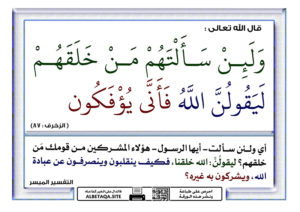 قال الله تعالى :
وَلَئِنْ سَأَلْتَهُمْ مَنْ خَلَقَهُمْ
لَيَقُولُنَّ اللَّهُ فَأَنَّى يُؤْفَكُونَ
( الزخرف : ٨٧ )
أي ولئن سألت - أيها الرسول - هؤلاء المشركين من قومك من
خلقهم؟ ليقولُنَّ: الله خلقنا، فكيف ينقلبون وينصرفون عن عبادة
الله، ويشركون به غيره؟
التفسير الميسر
ALBETAQA.SITE